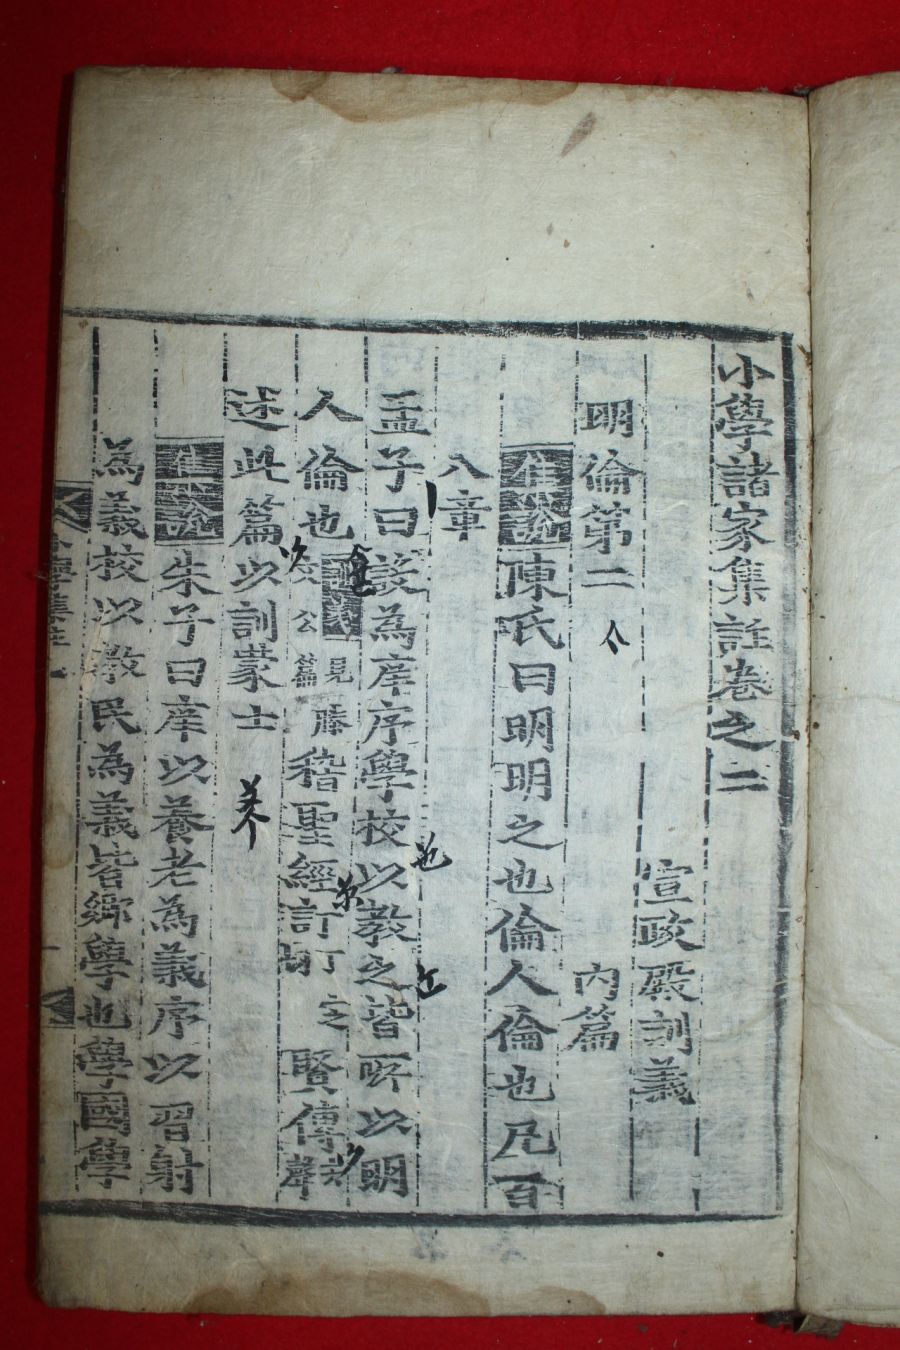 小學諸家集註卷之二
宣政殿訓義
明倫第二 內篇
集說陳氏曰明明之也倫人倫也凡百
八章
孟子曰設為庠序學校以教之皆所以明
人倫也見滕文公篇稽聖經訂賢傳
述此篇以訓蒙士
集說朱子曰庠以養老為義序以習射
為義校以教民為義皆鄉學也學國學